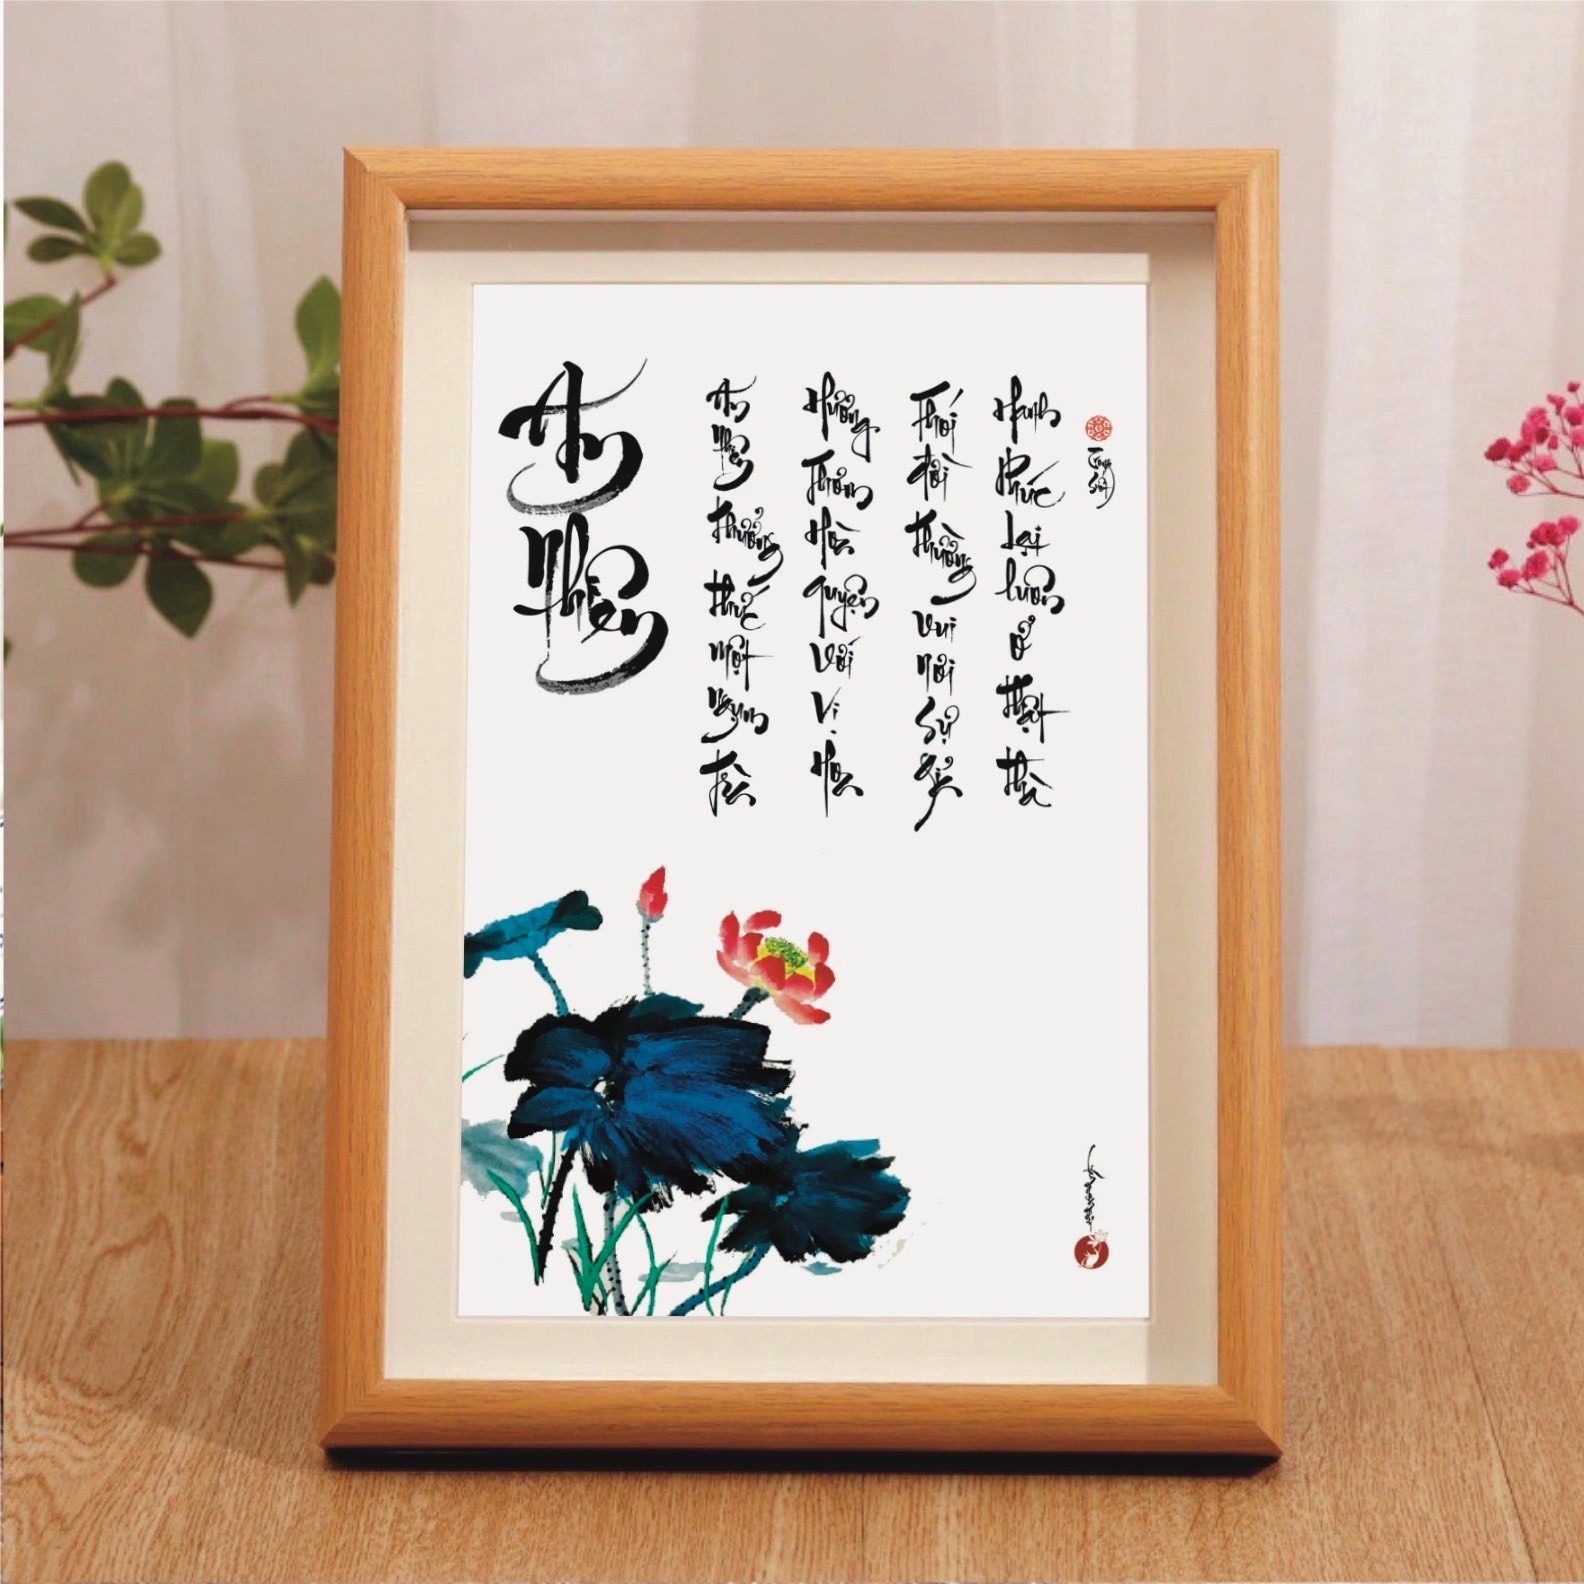 An
Nhiên
An nhiên thưởng thức một ngụm trà
Hương thơm hòa quyện với vị hoa
Thói đời thường vui nơi sự giả
Hạnh phúc lại luôn ở thật thà